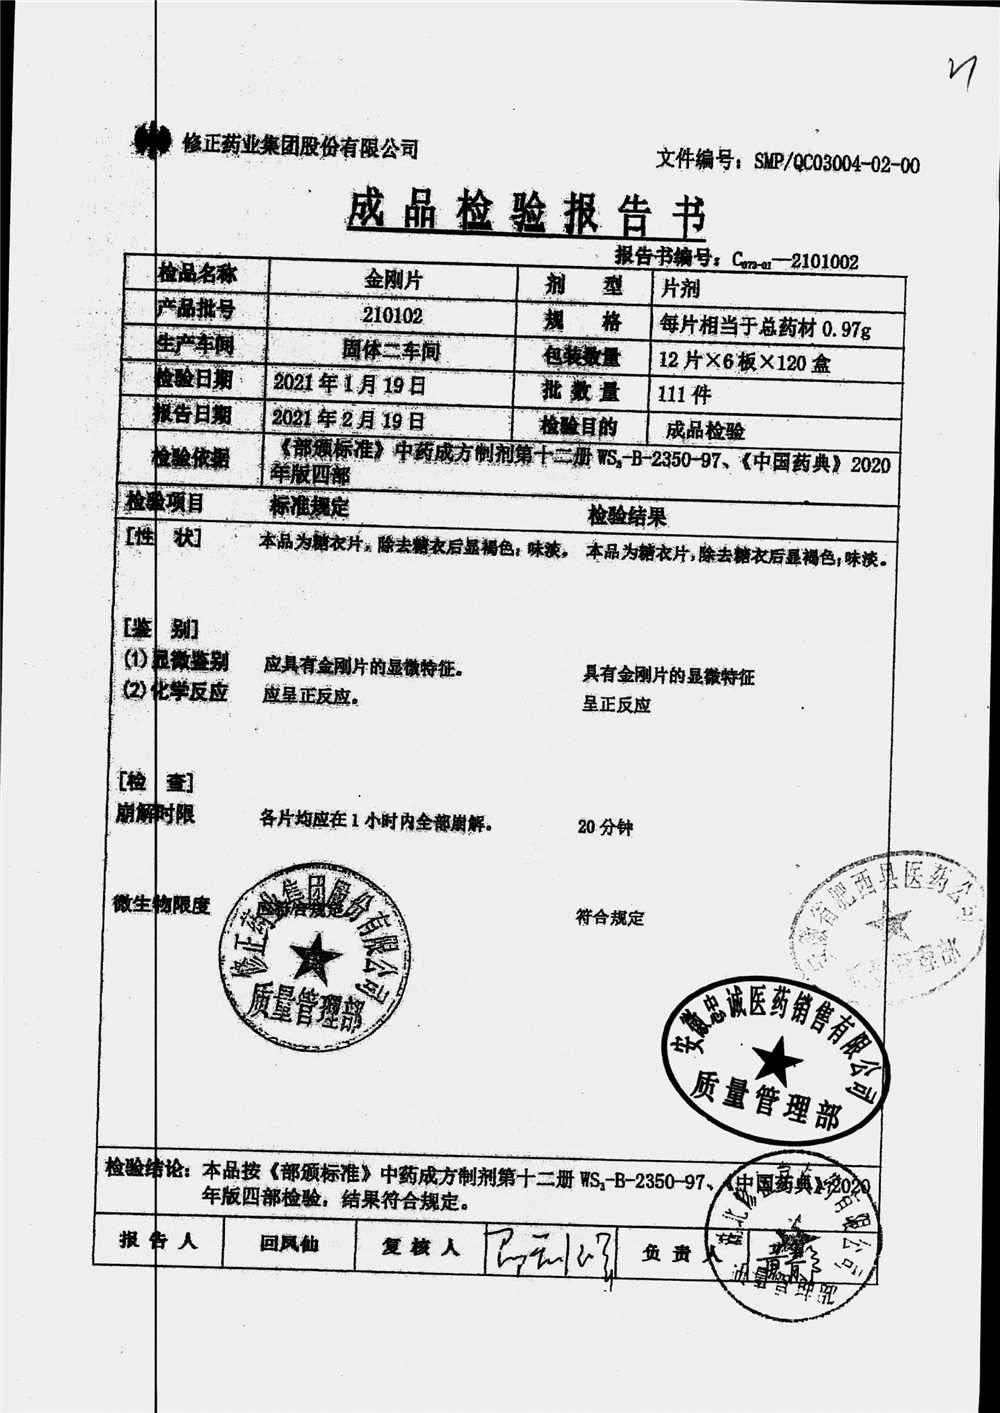 修正药业集团股份有限公司
文件编号：SMP/QC03004-02-00
成品检验报告书
报告书编号：C₀₇₃₋₀₁—2101002
检品名称 金刚片 剂 型 片剂
产品批号 210102 规 格 每片相当于总药材 0.97g
生产车间 固体二车间 包装数量 12 片×6 板×120 盒
检验日期 2021 年 1 月 19 日 批 数 量 111 件
报告日期 2021 年 2 月 19 日 检验目的 成品检验
检验依据 《部颁标准》中药成方制剂第十二册 WS₃-B-2350-97、《中国药典》2020
年版四部
检验项目 标准规定 检验结果
[性 状] 本品为糖衣片，除去糖衣后显褐色；味淡。 本品为糖衣片，除去糖衣后显褐色；味淡。
[鉴 别]
(1)显微鉴别 应具有金刚片的显微特征。 具有金刚片的显微特征
(2)化学反应 应呈正反应。 呈正反应
[检 查]
崩解时限 各片均应在 1 小时内全部崩解。 20 分钟
微生物限度 应符合规定 符合规定
修正药业集团股份有限公司
质量管理部
安徽省肥西县医药公司
安徽忠诚医药销售有限公司
质量管理部
检验结论：本品按《部颁标准》中药成方制剂第十二册 WS₃-B-2350-97、《中国药典》2020
年版四部检验，结果符合规定。
报 告 人 回凤仙 复 核 人 负 责 人